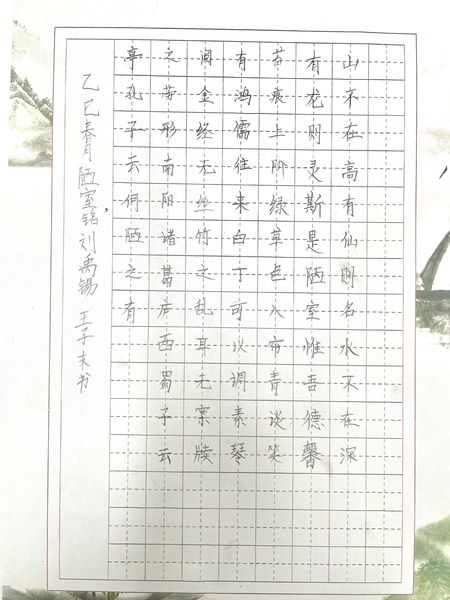 山不在高有仙则名水不在深
有龙则灵斯是陋室惟吾德馨
苔痕上阶绿草色入帘青谈笑
有鸿儒往来白丁可以调素琴
阅金经无丝竹之乱耳无案牍
之劳形南阳诸葛庐西蜀子云
亭孔子云何陋之有
乙巳春月 陋室铭 刘禹锡 王子末书